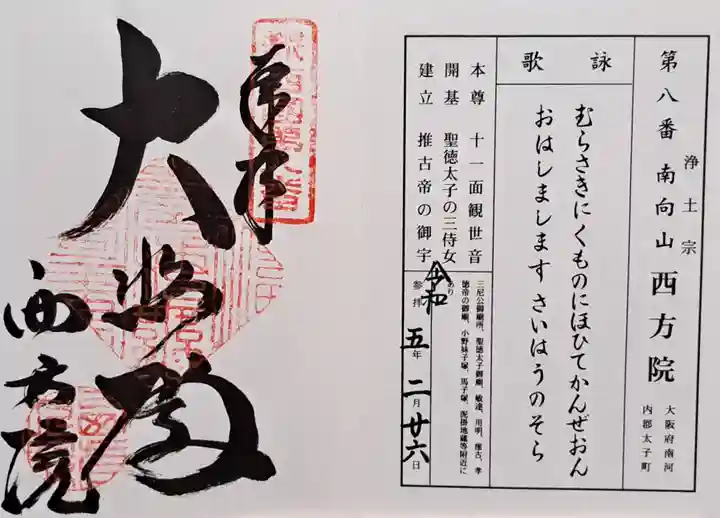 第八番 浄土宗 南向山 西方院 大阪府南河
内郡太子町
詠歌
むらさきにくものにほひてかんぜおん
おはしましますさいはうのそら
本尊 十一面観世音
開基 聖徳太子の三侍女
建立 推古帝の御宇
三尼公御廟所、聖徳太子御廟、敏達、用明、推古、孝
徳帝の御廟、小野妹子塚、馬子塚、泥掛地蔵等附近に
あり
令和
参拝 五年 二月 廿六日
奉拝
大悲殿
西方院